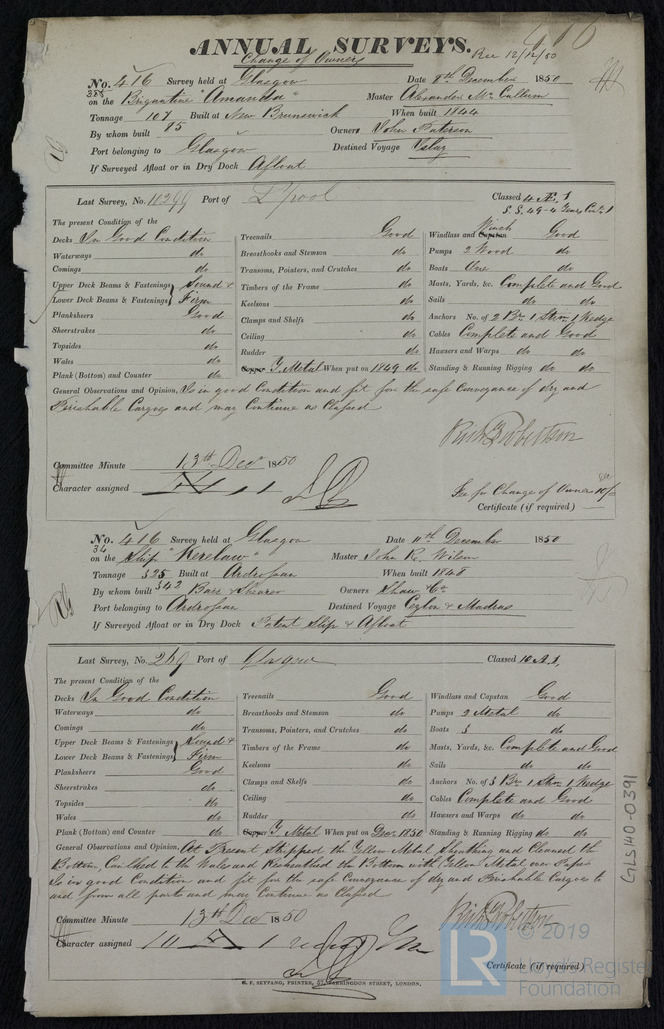 416
ANNUAL SURVEYS.
Change of Owners Rec 12/12/50
No. 416 Survey held at Glasgow Date 8th December 1850
385
on the Brigantine "Amanda" Master Alexander Mc Cullum
Tonnage 107 Built at New Brunswick When built 1844
By whom built 85 Owners John Paterson
Port belonging to Glasgow Destined Voyage Islay
If Surveyed Afloat or in Dry Dock Afloat
Last Survey, No. 11299 Port of L'pool Classed 4 Æ 1
S.S. 49-4 Years Cont. 1
The present Condition of the
Decks In Good Condition Treenails Good Windlass and Capstan Winch Good
Waterways do Breasthooks and Stemson do Pumps 2 Wood do
Comings do Transoms, Pointers, and Crutches do Boats One do
Upper Deck Beams & Fastenings Sound & Timbers of the Frame do Masts, Yards, &c. Complete and Good
Lower Deck Beams & Fastenings Firm Keelsons do Sails do do
Planksheers Good Clamps and Shelfs do Anchors No. of 2 Br 1 Strm 1 Kedge
Sheerstrakes do Ceiling do Cables Complete and Good
Topsides do Rudder do Hawsers and Warps do do
Wales do Copper Y. Metal When put on 1849 do Standing & Running Rigging do do
Plank (Bottom) and Counter do
General Observations and Opinion, Is in good Condition and fit for the safe Conveyance of dry and
Perishable Cargoes and may Continue as Classed
Richd Robertson
Committee Minute 13th Decr 1850
Character assigned
Fee for Change of Owners 10/-
Certificate (if required)
No. 416 Survey held at Glasgow Date 11th December 1850
34
on the Ship "Kerelaw" Master John R. Wilson
Tonnage 325 Built at Ardrossan When built 1848
By whom built 342 Barr & Shearer Owners Shaw & Co.
Port belonging to Ardrossan Destined Voyage Ceylon & Madras
If Surveyed Afloat or in Dry Dock Patent Slip & Afloat
Last Survey, No. 269 Port of Glasgow Classed 10 A 1
The present Condition of the
Decks In Good Condition Treenails Good Windlass and Capstan Good
Waterways do Breasthooks and Stemson do Pumps 2 Metal do
Comings do Transoms, Pointers, and Crutches do Boats 3 do
Upper Deck Beams & Fastenings Sound & Timbers of the Frame do Masts, Yards, &c. Complete and Good
Lower Deck Beams & Fastenings Firm Keelsons do Sails do do
Planksheers Good Clamps and Shelfs do Anchors No. of 3 Br 1 Strm 1 Kedge
Sheerstrakes do Ceiling do Cables Complete and Good
Topsides do Rudder do Hawsers and Warps do do
Wales do Copper Y. Metal When put on Decr 1850 Standing & Running Rigging do do
Plank (Bottom) and Counter do
General Observations and Opinion, At Present Stripped the Yellow Metal Sheathing and Cleaned the
Bottom, Caulked to the Wales and Resheathed the Bottom with Yellow Metal over Paper
Is in good Condition and fit for the safe Conveyance of dry and Perishable Cargoes to
and from all parts and may Continue as Classed
Richd Robertson
Committee Minute 13th Decr 1850
Character assigned 10 A 1
Certificate (if required)
G. F. SEYFANG, PRINTER, 57, FARRINGDON STREET, LONDON.
GLS140-0391
LR © 2019
Lloyd's Register
Foundation